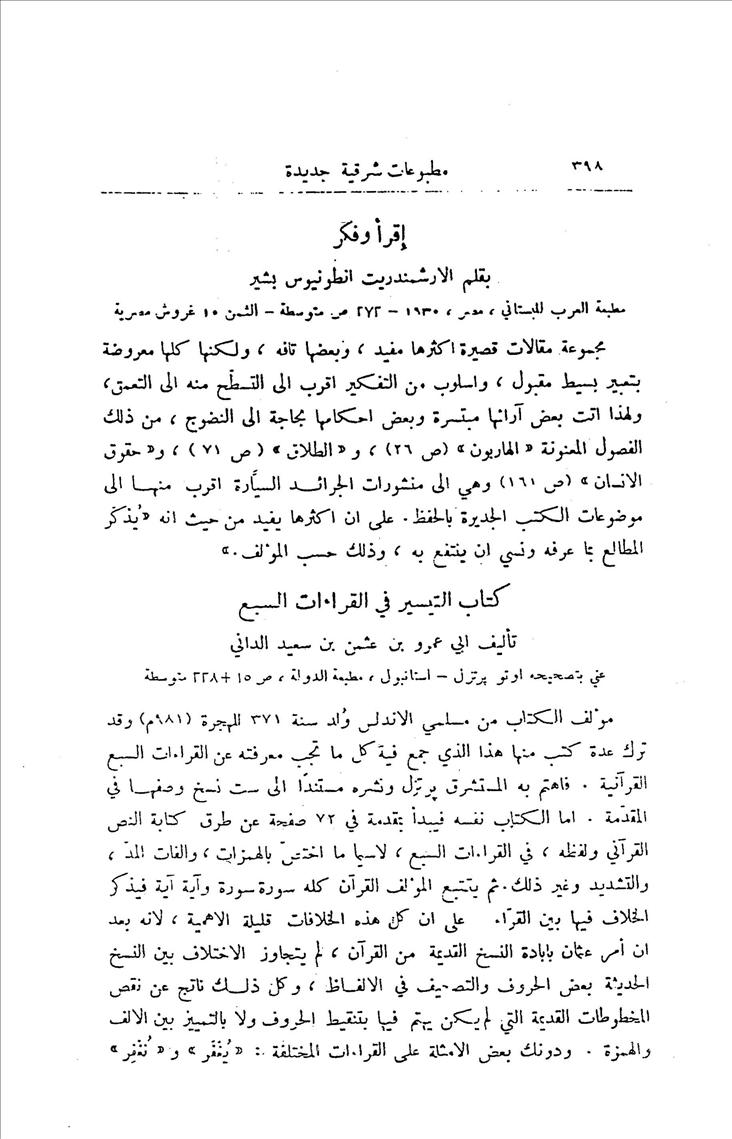 ٣٩٨
مطبوعات شرقية جديدة
إقرأ وفكر
بقلم الارشمندريت انطونيوس بشير
مطبعة العرب للبستاني ، مصر ، ١٩٣٠ – ٢٧٢ ص متوسطة – الثمن ١٠ غروش مصرية
مجموعة مقالات قصيرة اكثرها مفيد ، وبعضها تافه ، ولكنها كلها معروضة
بتعبير بسيط مقبول ، واسلوب من التفكير اقرب الى التسطّح منه الى التعمق،
ولهذا اتت بعض آرائها مبتسرة وبعض احكامها بحاجة الى النضوج ، من ذلك
الفصول المعنونة «الهاربون» (ص ٢٦) ، و «الطلاق» (ص ٧١) ، و«حقوق
الانسان» (ص ١٦١) وهي الى منشورات الجرائد السيَّارة اقرب منها الى
موضوعات الكتب الجديرة بالحفظ. على ان اكثرها يفيد من حيث انه «يُذكّر
المطالع بما عرفه ونسي ان ينتفع به ، وذلك حسب المؤلف.»
كتاب التيسير في القراءات السبع
تأليف ابي عمرو بن عثمن بن سعيد الداني
عني بتصحيحه اوتو پرتزل – استانبول ، مطبعة الدولة ، ص ١٥+٢٢٨ متوسطة
مؤلف الكتاب من مسلمي الاندلس وُلد سنة ٣٧١ للهجرة (٩٨١م) وقد
ترك عدة كتب منها هذا الذي جمع فية كل ما تجب معرفته عن القراءات السبع
القرآنية . فاهتم به المستشرق پرتزل ونشره مستندًا الى ست نسخ وصفها في
المقدّمة . اما الكتاب نفسه فيبدأ بتقدمة في ٧٢ صفحة عن طرق كتابة النص
القرآني ولفظه ، في القراءات السبع ، لاسيما ما اختصّ بالهمزات ، والفات المدّ ،
والتشديد وغير ذلك. ثم يتتبع المؤلف القرآن كله سورة سورة وآية آية فيذكر
الخلاف فيها بين القرّاء . على ان كل هذه الخلافات قليلة الاهمية ، لانه بعد
ان أمر عثمان بابادة النسخ القديمة من القرآن ، لم يتجاوز الاختلاف بين النسخ
الحديثة بعض الحروف والتصحيف في الالفاظ ، وكل ذلك ناتج عن نقص
المخطوطات القديمة التي لم يكن يهتم فيها بتنقيط الحروف ولا بالتمييز بين الالف
والهمزة . ودونك بعض الامثلة على القراءات المختلفة : «يُغْفَر» و «نُغْفِر»